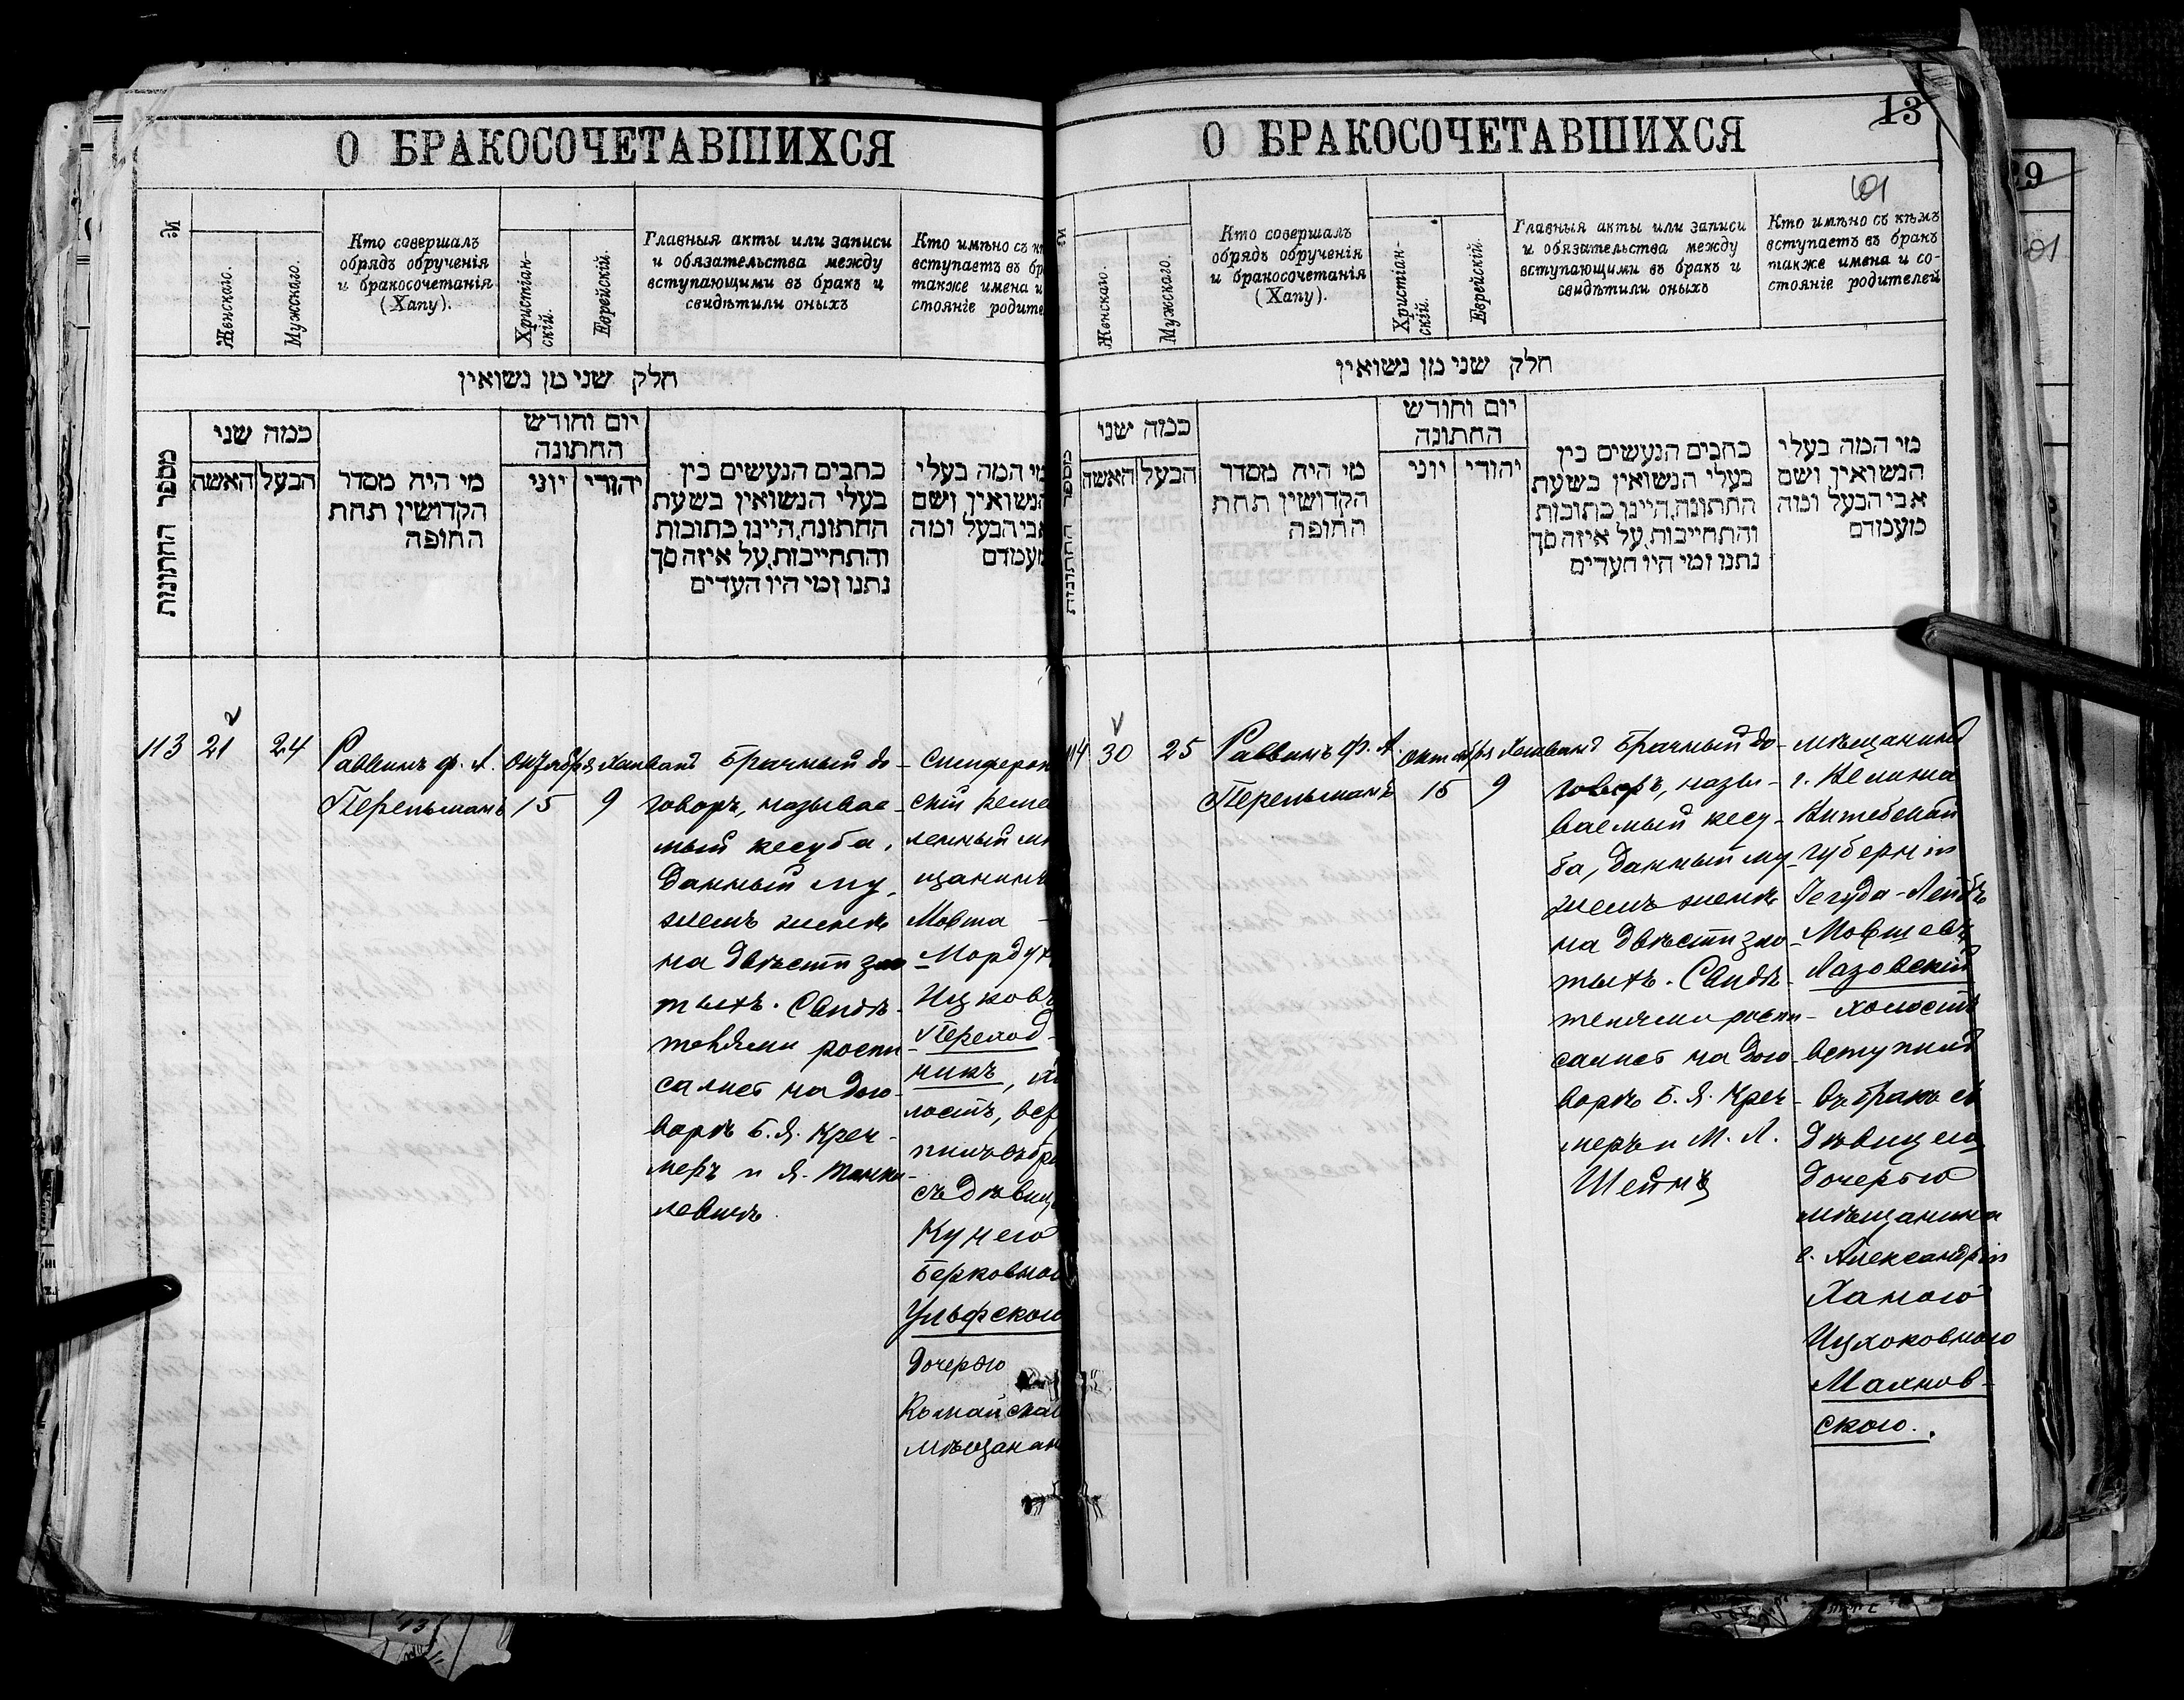 О БРАКОСОЧЕТАВШИХСЯ
№
Женскаго.
Мужскаго.
Кто совершалъ
обрядъ обрученія
и бракосочетанія
(Хапу).
Христіан-
скій.
Еврейскій.
Главныя акты или записи
и обязательства между
вступающими въ бракъ и
свидѣтили оныхъ
Кто имѣно съ
вступаетъ въ бр
также имена и
стояніе родите
חלק שני מן נשואין
מספר החתונות
כמה שני
האשה
הבעל
מי היה מסדר
הקדושין תחת
החופה
יום וחודש
החתונה
יוני
יהודי
כתבים הנעשים בין
בעלי הנשואין בשעת
החתונה, היינו כתובות
והתחייבות, על איזה סך
נתנו ומי היו העדים
מי המה בעלי
הנשואין, ושם
אבי הבעל ומה
מעמדם
113
21
24
Раввинъ Ф. А.
Перельманъ
Октября
15
9
Брачный до-
говоръ, называе-
мый кесуба,
данный му-
жемъ женѣ
на двѣсти зло-
тыхъ. Свидѣ-
телями роспи-
сались на дого-
ворѣ Б. Я. Креч-
меръ и Я.
Симфероп
скій реме
ленный мѣ
щанинъ
Мовша -
Мордух
Ицковъ
Переход-
никъ, хо
лостъ, вст
пилъ въ бра
съ дѣвиц
Кунею
Берковною
Ульфскою
дочерью
мѣщанин
О БРАКОСОЧЕТАВШИХСЯ
13
101
№
Женскаго.
Мужскаго.
Кто совершалъ
обрядъ обрученія
и бракосочетанія
(Хапу).
Христіан-
скій.
Еврейскій.
Главныя акты или записи
и обязательства между
вступающими въ бракъ и
свидѣтили оныхъ
Кто имѣно съ кѣмъ
вступаетъ въ бракъ
также имена и со-
стояніе родителей
חלק שני מן נשואין
מספר החתונות
כמה שני
האשה
הבעל
מי היה מסדר
הקדושין תחת
החופה
יום וחודש
החתונה
יוני
יהודי
כתבים הנעשים בין
בעלי הנשואין בשעת
החתונה, היינו כתובות
והתחייבות, על איזה סך
נתנו ומי היו העדים
מי המה בעלי
הנשואין, ושם
אבי הבעל ומה
מעמדם
114
30
25
Раввинъ Ф. А.
Перельманъ
Октября
15
9
Брачный до-
говоръ, назы-
ваемый кесу-
ба, данный му-
жемъ женѣ
на двѣсти зло-
тыхъ. Свидѣ-
телями роспи-
сались на дого-
ворѣ Б. Я. Креч-
меръ и М. Л.
Шейнъ
мѣщанинъ
г. Велижа
Витебской
губерніи
Іегуда-Лейбъ
Мовшевъ
Лазовскій
холостъ
вступилъ
въ бракъ съ
дѣвицею
дочерью
мѣщанина
г. Александріи
Ханою
Ицхоковною
Махнов-
скою.
29
01